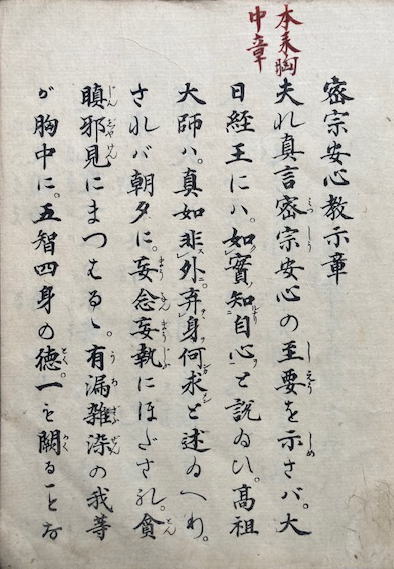 本来胸
中章
密宗安心教示章
夫れ真言密宗安心の至要を示さバ。大
日経王にハ。如實知自心と説給ひ。高祖
大師ハ。真如非外。弃身何求と述給へり。
されバ朝夕に。妄念妄執にほだされ。貪
瞋邪見にまつはるゝ。有漏雑染の我等
が胸中に。五智四身の徳。一も闕ることな